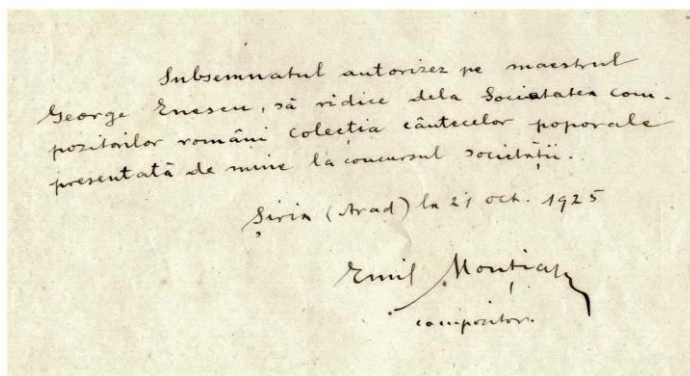 Subsemnatul autorizez pe maestrul
George Enescu, să ridice dela Societatea com-
pozitorilor români colecția cântecelor poporale
presentată de mine la concursul societății.
Șiria (Arad) la 21 oct. 1925
Emil Monția
compozitor.